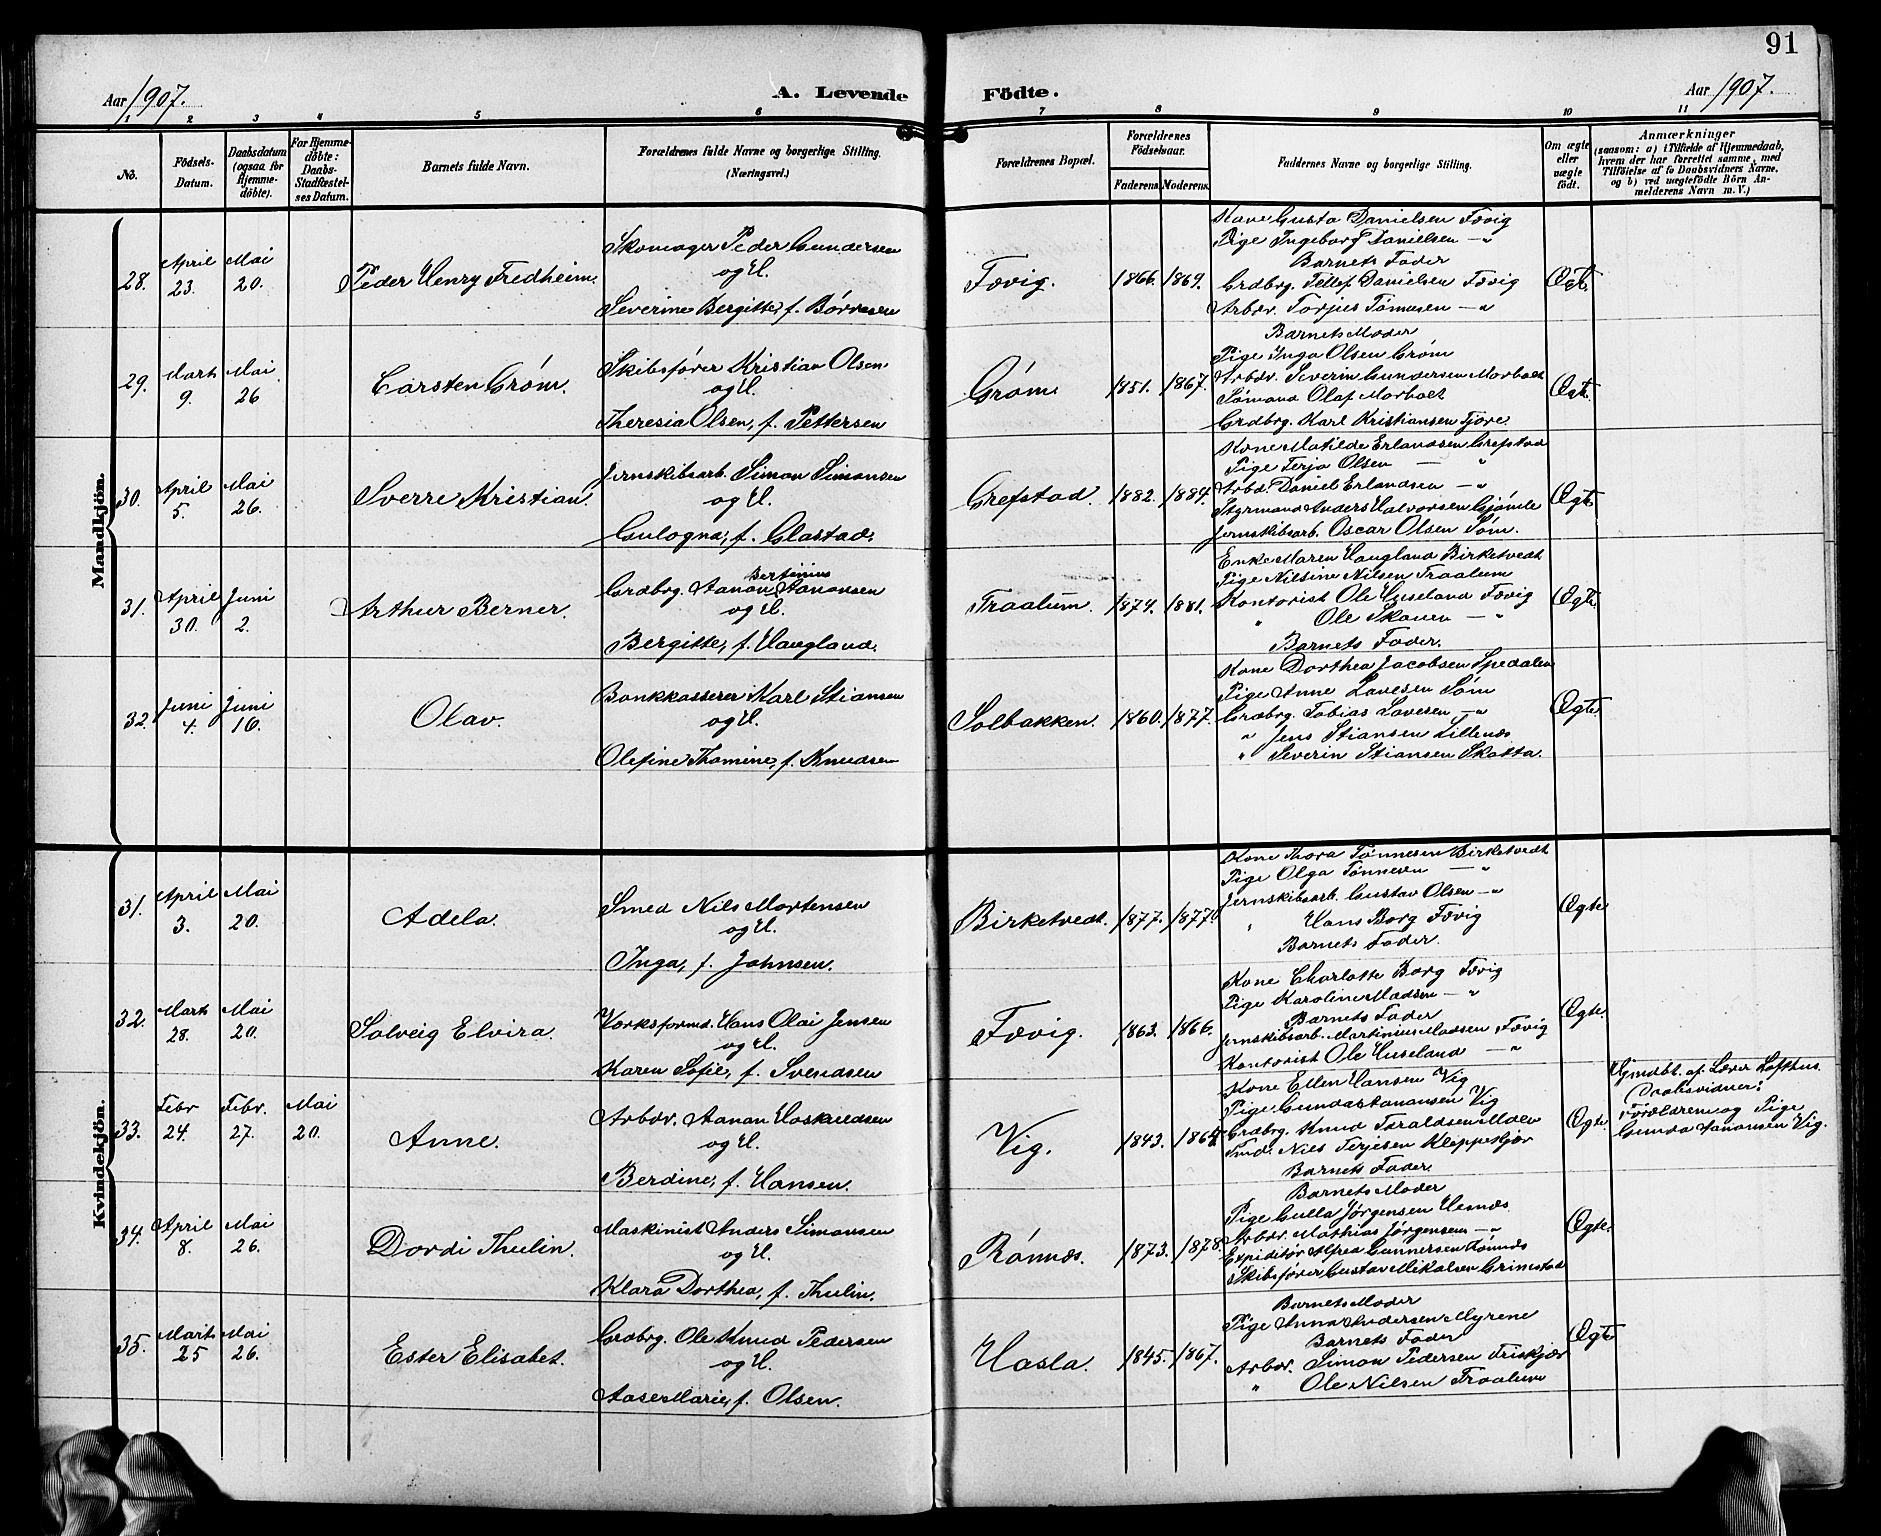 91
Aar 1907. A. Levende Födte. Aar 1907.
1 2 3 4 5 6 7 8 9 10 11
No. Födsels-Datum. Daabsdatum (ogsaa for Hjemme-döbte). For Hjemme-döbte: Daabs-Stadfæstel-ses Datum. Barnets fulde Navn. Forældrenes fulde Navne og borgerlige Stilling. (Næringsvei.) Forældrenes Bopæl. Forældrenes Födselsaar. Faderens. Moderens. Faddernes Navne og borgerlige Stilling. Om ægte eller uægte födt. Anmærkninger
(saasom: a) i Tilfælde af Hjemmedaab,
hvem der har forrettet samme, med
Tilföielse af to Daabsvidners Navne,
og b) ved uægtefödte Börn An-
melderens Navn m. V.)
Mandkjön.
28. April 23. Mai 20. Peder Henry Fredheim.
Skomager Peder Gundersen
og H.
Severine Bergitte, f. Börresen
Fævig. 1866. 1869.
Kone Gusta Danielsen Fævig
Pige Ingeborg Danielsen — "
Barnets Fader
Grdbrg. Tellef Danielsen Fævig
Arbdr. Torjus Tönnesen — "
Ægte.
29. Marts 9. Mai 26 Carsten Gröm.
Skibsförer Kristian Olsen
og H.
Theresia Olsen, f. Pettersen
Gröm 1851. 1867.
Barnets Moder
Pige Inga Olsen Gröm
Arbdr. Severin Gundersen Morholt
Sömand Olaf Morholt
Grdbrg. Karl Kristiansen Fjære.
Ægte.
30. April 5. Mai 26. Sverre Kristian.
Jernskibsarb. Simon Simonsen
og H.
Gulogna, f. Glastad.
Grefstad. 1882. 1884.
Kone Matilde Erlandsen Grefstad
Pige Terja Olsen — "
Arbd. Daniel Erlandsen — "
Styrmand Anders Halvorsen Gjömle
Jernskibsarb. Oscar Olsen Söm.
Ægte
31. April 30. Juni 2. Arthur Berner.
Grdbrg. Aanon Bertinius Aanonsen
og H.
Bergitte, f. Haugland.
Traalum. 1874. 1881.
Enke Maren Haugland Birketvedt
Pige Nilsine Nilsen Traalum
Kontorist Ole Huseland Fævig
" Ole Skauen — "
Barnets Fader.
Ægte
32. Juni 4. Juni 16. Olav.
Bankkasserer Karl Stiansen
og H.
Olefine Thomine, f. Knudsen
Solbakken. 1860. 1877.
Kone Dorthea Jacobsen Spedalen
Pige Anne Lavesen Söm
Grdbrg. Tobias Lavesen — "
" Jens Stiansen Lillenæs
" Severin Stiansen Skatta.
Ægte
Kvindekjön.
31. April 3. Mai 20. Adela.
Smed Nils Mortensen
og H.
Inga, f. Johnsen.
Birketvedt. 1877. 1877.
Kone Thora Tönnesen Birketvedt
Pige Olga Tönnesen — "
Jernskibsarb. Gustav Olsen — "
" Hans Borg Fævig
Barnets Fader.
Ægte
32. Marts 28. Mai 20. Solveig Elvira.
Værksformd. Hans Olai Jensen
og H.
Karen Sofie, f. Svendsen
Fævig. 1863. 1866.
Kone Charlotte Borg Fævig
Pige Karoline Madsen — "
Barnets Fader
Jernskibsarb. Martinius Madsen Fævig
Kontorist Ole Huseland — "
Ægte.
33. Febr 24. Febr. 27. Mai 20. Anne.
Arbdr. Aanon Haskuldsen
og H.
Berdine, f. Hansen.
Vig. 1843.
Kone Ellen Hansen Vig
Pige Gunda Aanonsen Vig
Grdbrg. Knud Taraldsen Molen
Tmd. Nils Terjesen Kleppekjær
Barnets Fader.
Ægte.
Hjmdbt. af Lærer Lofthus.
Daabsvidner:
Forældrene og Pige
Gunda Aanonsen Vig.
34. April 8. Mai 26. Dordi Thulin.
Maskinist Anders Simonsen
og H.
Klara Dorthea, f. Thulin.
Rönnæs. 1873. 1878.
Barnets Moder
Pige Gulla Jörgensen Hesnæs
Arbdr. Mathias Jörgensen — "
Expeditör Alfred Gunnersen Rönnæs
Skibsförer Gustav Mikalsen Grimstad
Ægte.
35. Marts 25 Mai 26. Ester Elisabet.
Grdbrg. Ole Knud Pedersen
og H.
Aase Marie, f. Olsen.
Hasla. 1845. 1867.
Barnets Moder
Pige Anna Andersen Myrene
Barnets Fader
Arbdr. Simon Pedersen Friskjær
" Ole Nilsen Traalum
Ægte